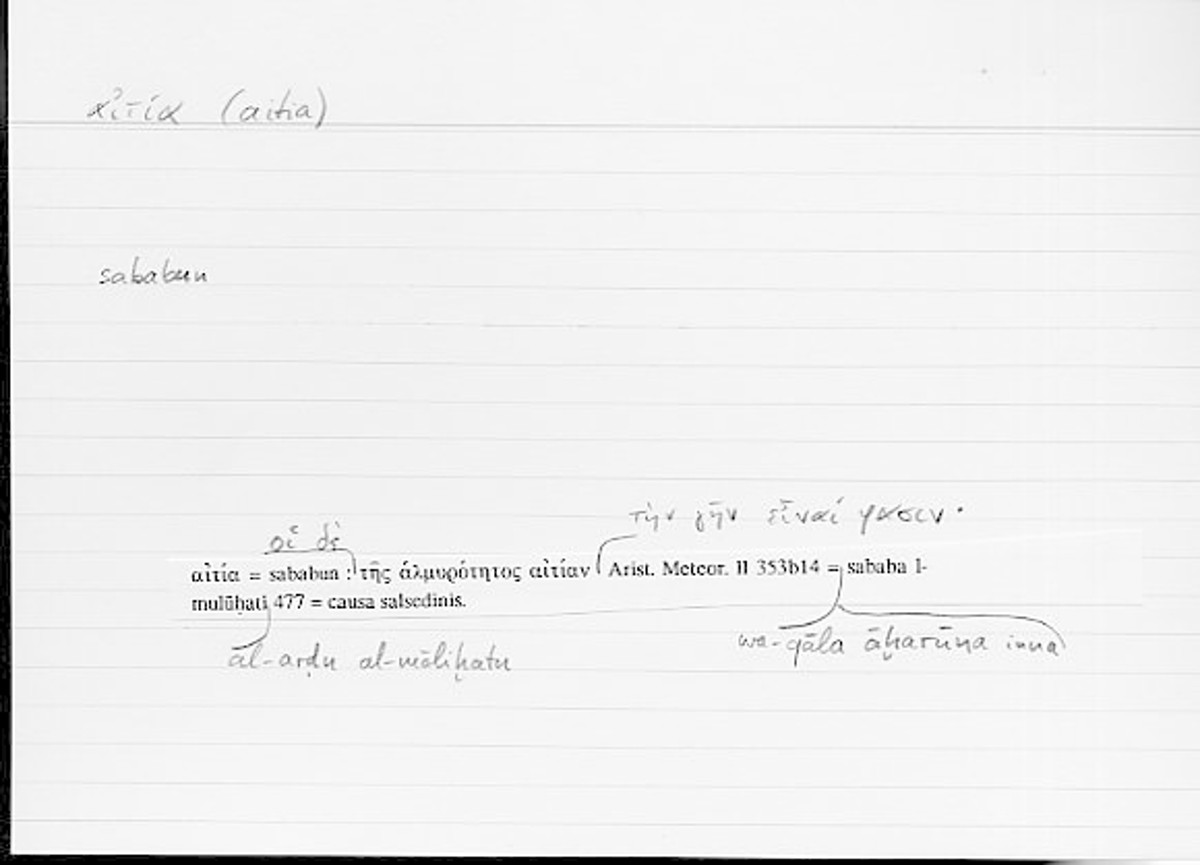 αἰτία (aitia)
sababun
τὴν γῆν εἶναί φασιν·
οἱ δὲ
αἰτία = sababun : τῆς ἁλμυρότητος αἰτίαν Arist. Meteor. II 353b14 = sababa l-
mulūḥati 477 = causa salsedinis.
wa-qāla āḫarūna inna
al-arḍu al-māliḥatu